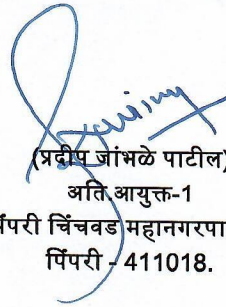 (प्रदीप जांभळे पाटील)
अति.आयुक्त-1
पिंपरी चिंचवड महानगरपा
पिंपरी - 411018.